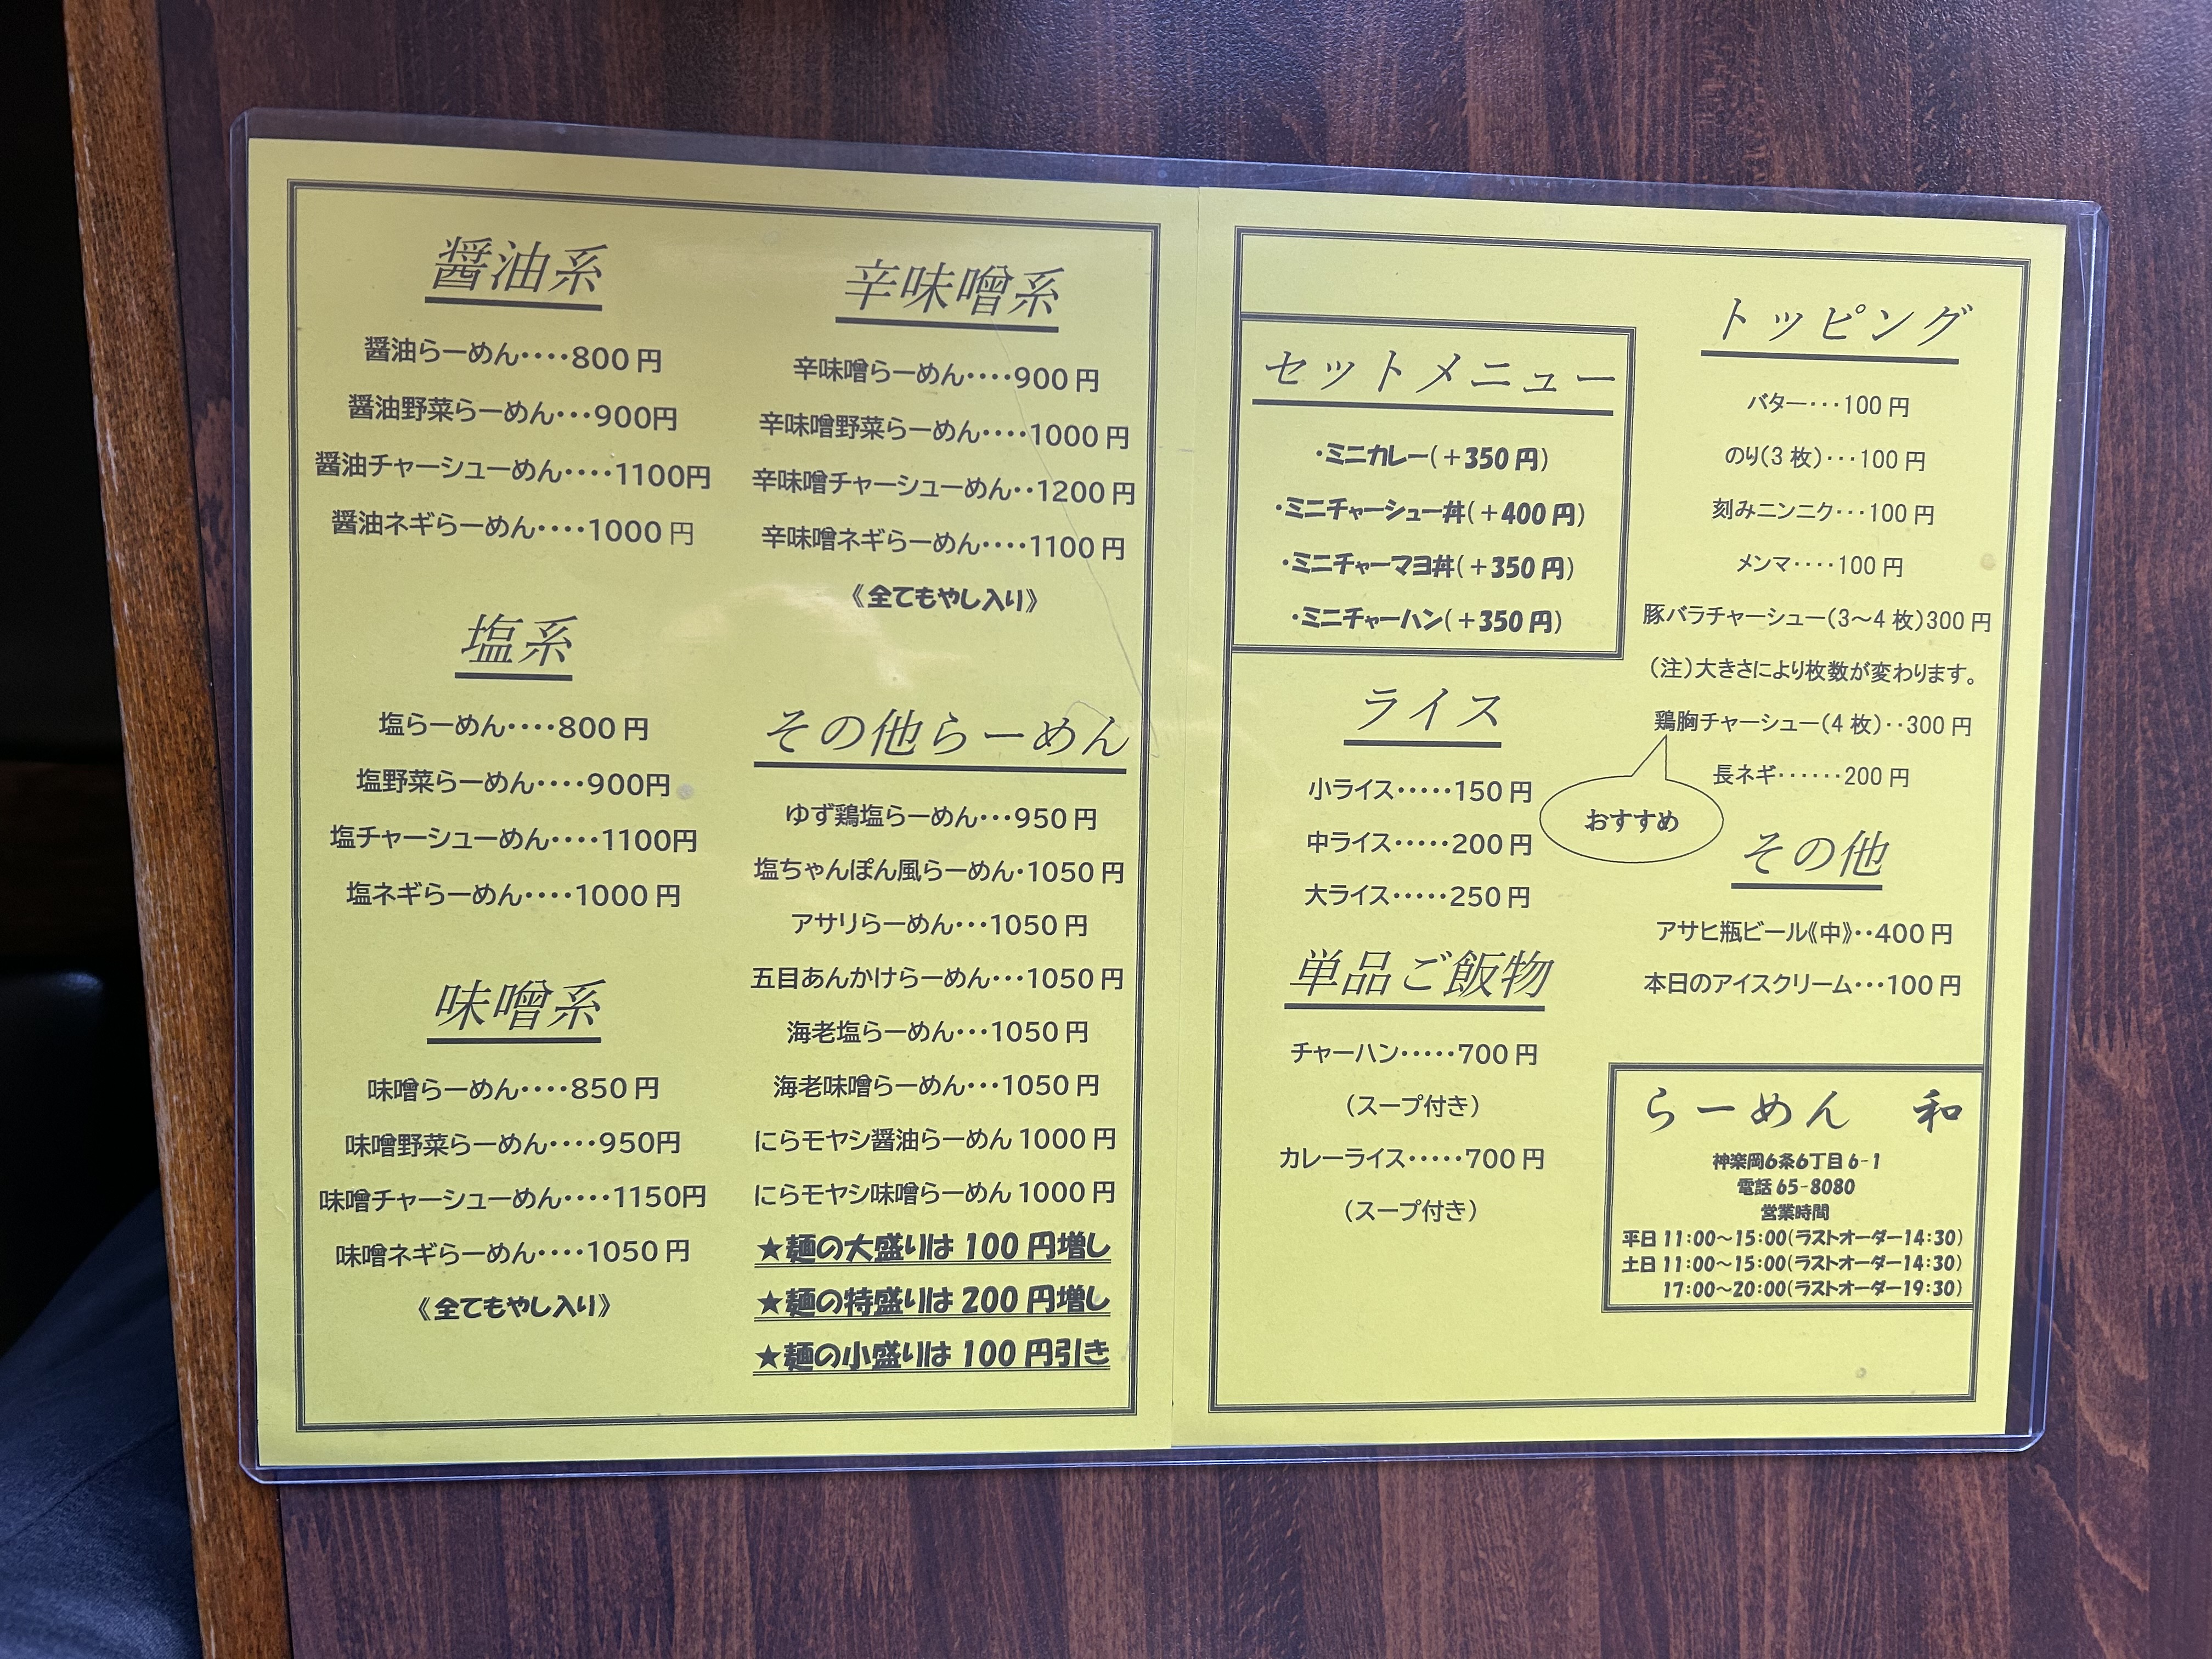 醤油系
醤油らーめん････800円
醤油野菜らーめん･･･900円
醤油チャーシューめん････1100円
醤油ネギらーめん････1000円
塩系
塩らーめん････800円
塩野菜らーめん････900円
塩チャーシューめん････1100円
塩ネギらーめん････1000円
味噌系
味噌らーめん････850円
味噌野菜らーめん････950円
味噌チャーシューめん････1150円
味噌ネギらーめん････1050円
《全てもやし入り》
辛味噌系
辛味噌らーめん････900円
辛味噌野菜らーめん････1000円
辛味噌チャーシューめん･･1200円
辛味噌ネギらーめん････1100円
《全てもやし入り》
その他らーめん
ゆず鶏塩らーめん･･･950円
塩ちゃんぽん風らーめん･1050円
アサリらーめん･･･1050円
五目あんかけらーめん･･･1050円
海老塩らーめん･･･1050円
海老味噌らーめん･･･1050円
にらモヤシ醤油らーめん 1000円
にらモヤシ味噌らーめん 1000円
★麺の大盛りは100円増し
★麺の特盛りは200円増し
★麺の小盛りは100円引き
セットメニュー
･ミニカレー(＋350円)
･ミニチャーシュー丼(＋400円)
･ミニチャーマヨ丼(＋350円)
･ミニチャーハン(＋350円)
ライス
小ライス･････150円
中ライス･････200円
大ライス･････250円
単品ご飯物
チャーハン･････700円
(スープ付き)
カレーライス･････700円
(スープ付き)
トッピング
バター･･･100円
のり(3枚)･･･100円
刻みニンニク･･･100円
メンマ････100円
豚バラチャーシュー(3〜4枚)300円
(注)大きさにより枚数が変わります。
鶏胸チャーシュー(4枚)･･300円
長ネギ･･････200円
おすすめ
その他
アサヒ瓶ビール《中》･･400円
本日のアイスクリーム･･･100円
らーめん 和
神楽岡6条6丁目6-1
電話 65-8080
営業時間
平日 11:00〜15:00(ラストオーダー14:30)
土日 11:00〜15:00(ラストオーダー14:30)
17:00〜20:00(ラストオーダー19:30)